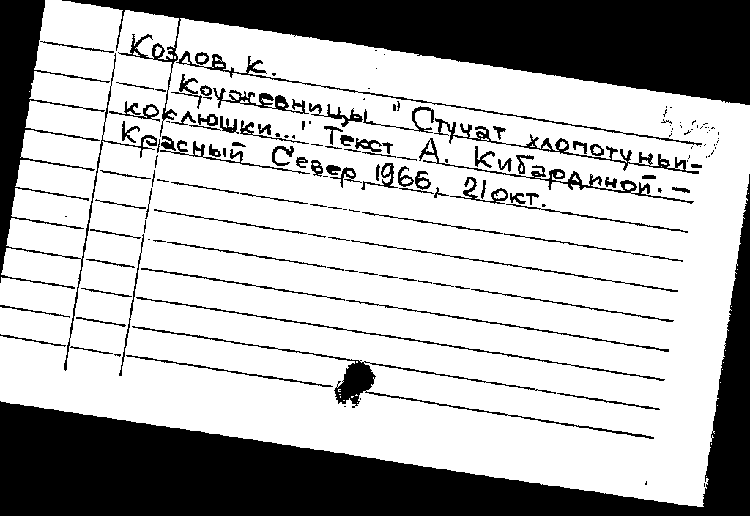 Козлов, К.
Кружевницы. "Стучат хлопотуньи-
коклюшки..." Текст А. Кибардиной. —
Красный Север, 1966, 21 окт.